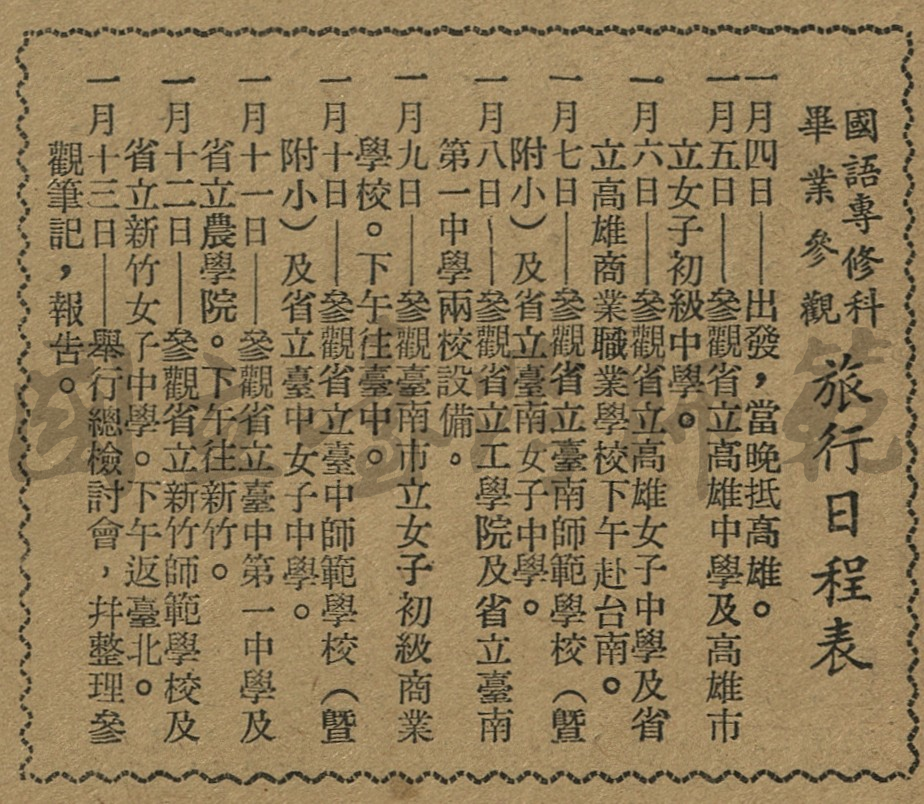 國語專修科
畢業參觀
旅行日程表
一月四日——出發，當晚抵高雄。
一月五日——參觀省立高雄中學及高雄市
立女子初級中學。
一月六日——參觀省立高雄女子中學及省
立高雄商業職業學校下午赴台南。
一月七日——參觀省立臺南師範學校（暨
附小）及省立臺南女子中學。
一月八日——參觀省立工學院及省立臺南
第一中學兩校設備。
一月九日——參觀臺南市立女子初級商業
學校。下午往臺中。
一月十日——參觀省立臺中師範學校（暨
附小）及省立臺中女子中學。
一月十一日——參觀省立臺中第一中學及
省立農學院。下午往新竹。
一月十二日——參觀省立新竹師範學校及
省立新竹女子中學。下午返臺北。
一月十三日——舉行總檢討會，幷整理參
觀筆記，報告。